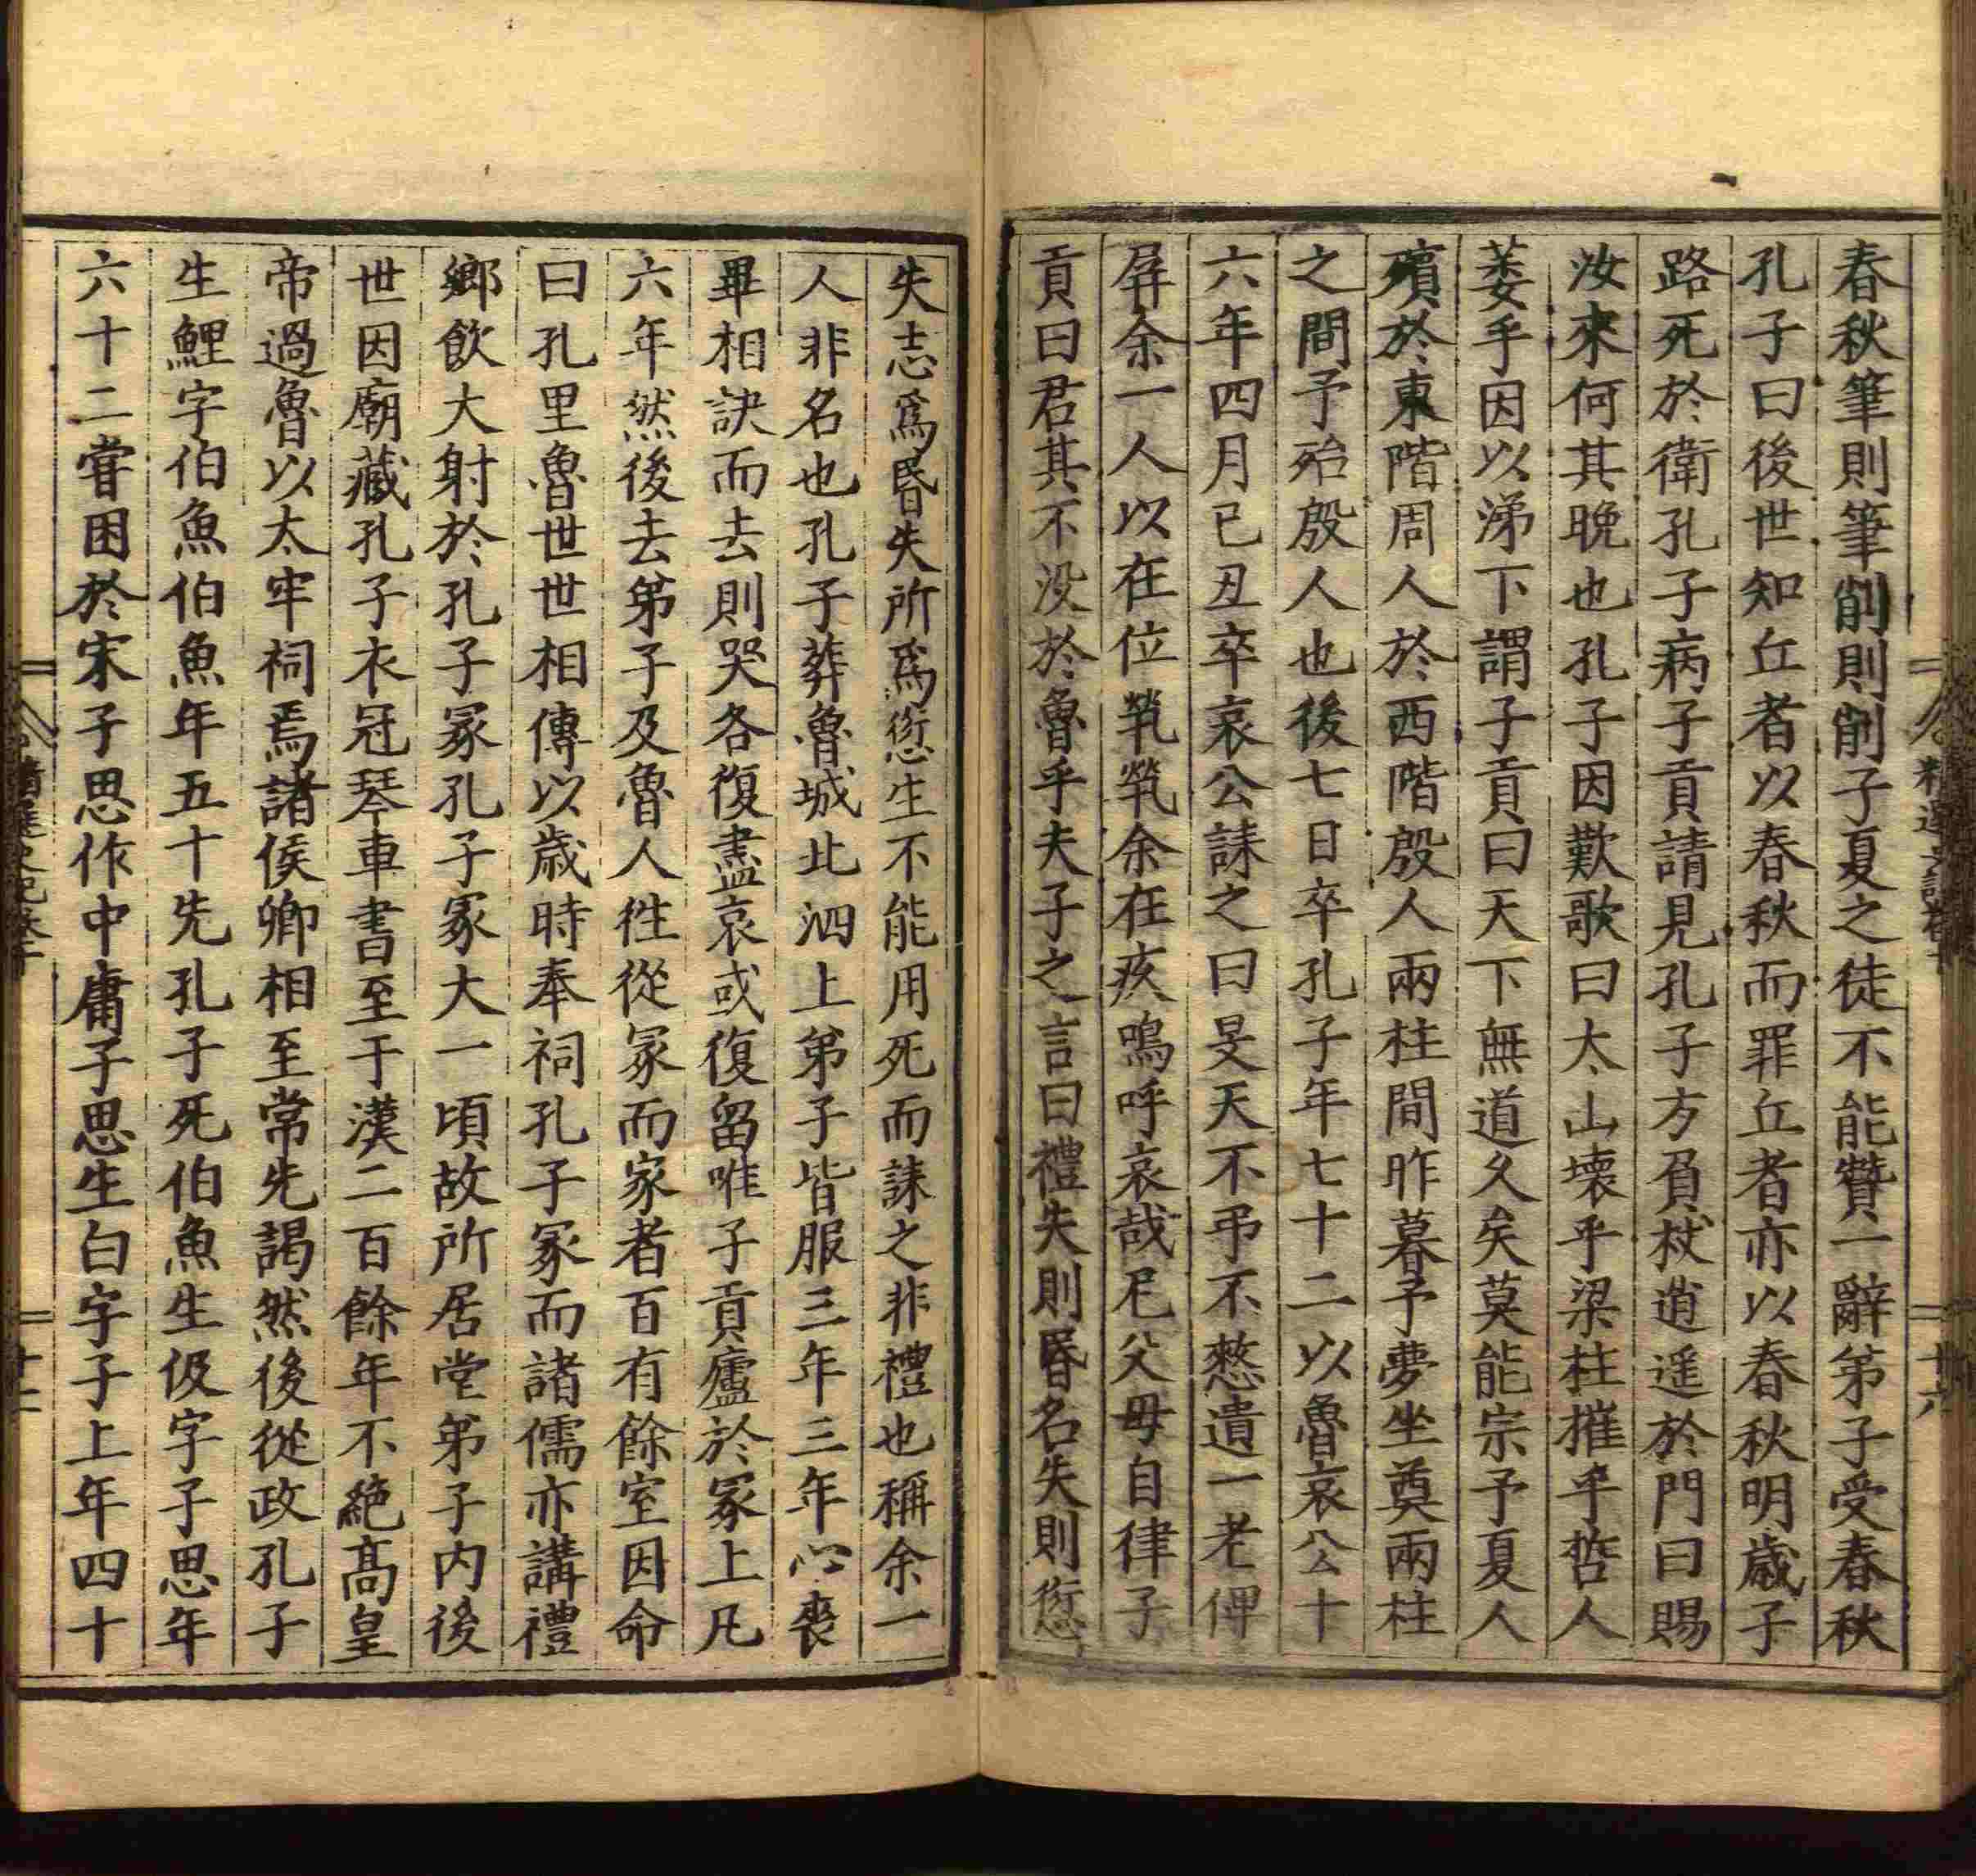 春秋筆則筆削則削子夏之徒不能贊一辭弟子受春秋
孔子曰後世知丘者以春秋而罪丘者亦以春秋明歲子
路死於衛孔子病子貢請見孔子方負杖逍遥於門曰賜
汝來何其晚也孔子因歎歌曰太山壊乎梁柱摧乎哲人
萎乎因以涕下謂子貢曰天下無道久矣莫能宗予夏人
殯於東階周人於西階殷人兩柱間昨暮予夢坐奠兩柱
之間予殆殷人也後七日卒孔子年七十二以魯哀公十
六年四月己丑卒哀公誄之曰旻天不弔不憗遺一老俾
屏余一人以在位煢煢余在疚嗚呼哀哉尼父毋自律子
貢曰君其不没於魯乎夫子之言曰禮失則昬名失則愆
失志爲昬失所爲愆生不能用死而誄之非禮也稱余一
人非名也孔子葬魯城北泗上弟子皆服三年三年心喪
畢相訣而去則哭各復盡哀或復留唯子貢廬於冢上凡
六年然後去弟子及魯人徃從冢而家者百有餘室因命
曰孔里魯世世相傳以歲時奉祠孔子冢而諸儒亦講禮
鄉飲大射於孔子冢孔子冢大一頃故所居堂弟子内後
世因廟藏孔子衣冠琴車書至于漢二百餘年不絶髙皇
帝過魯以太牢祠焉諸侯卿相至常先謁然後從政孔子
生鯉字伯魚伯魚年五十先孔子死伯魚生伋字子思年
六十二甞困於宋子思作中庸子思生白字子上年四十